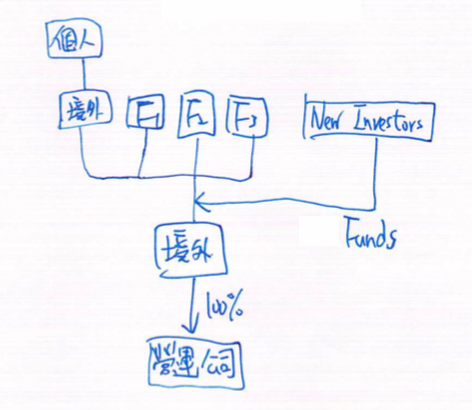 個人
境外
F1
F2
F3
New Investors
Funds
境外
100%
營運公司